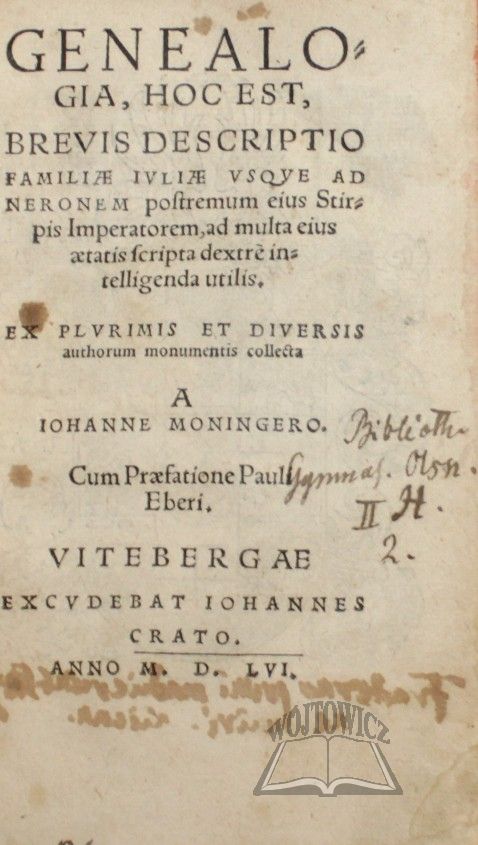 GENEALO⸗
GIA, HOC EST,
BREVIS DESCRIPTIO
FAMILIÆ IVLIÆ VSQVE AD
NERONEM poſtremum eius Stir⸗
pis Imperatorem, ad multa eius
ætatis ſcripta dextrè in⸗
telligenda utilis.
EX PLVRIMIS ET DIVERSIS
authorum monumentis collecta
A
IOHANNE MONINGERO.
Cum Præfatione Pauli
Eberi.
Biblioth.
Gymnas. Olsn.
II H.
2.
VITEBERGAE
EXCVDEBAT IOHANNES
CRATO.
ANNO M. D. LVI.
WÓJTOWICZ